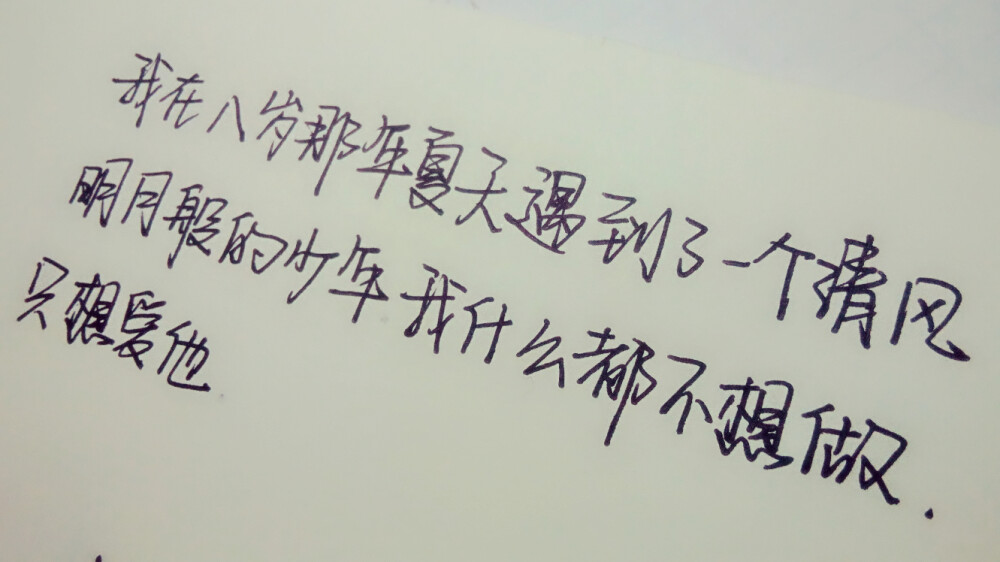 我在八岁那年夏天遇到了一个清风
明月般的少年我什么都不想做.
只想爱他